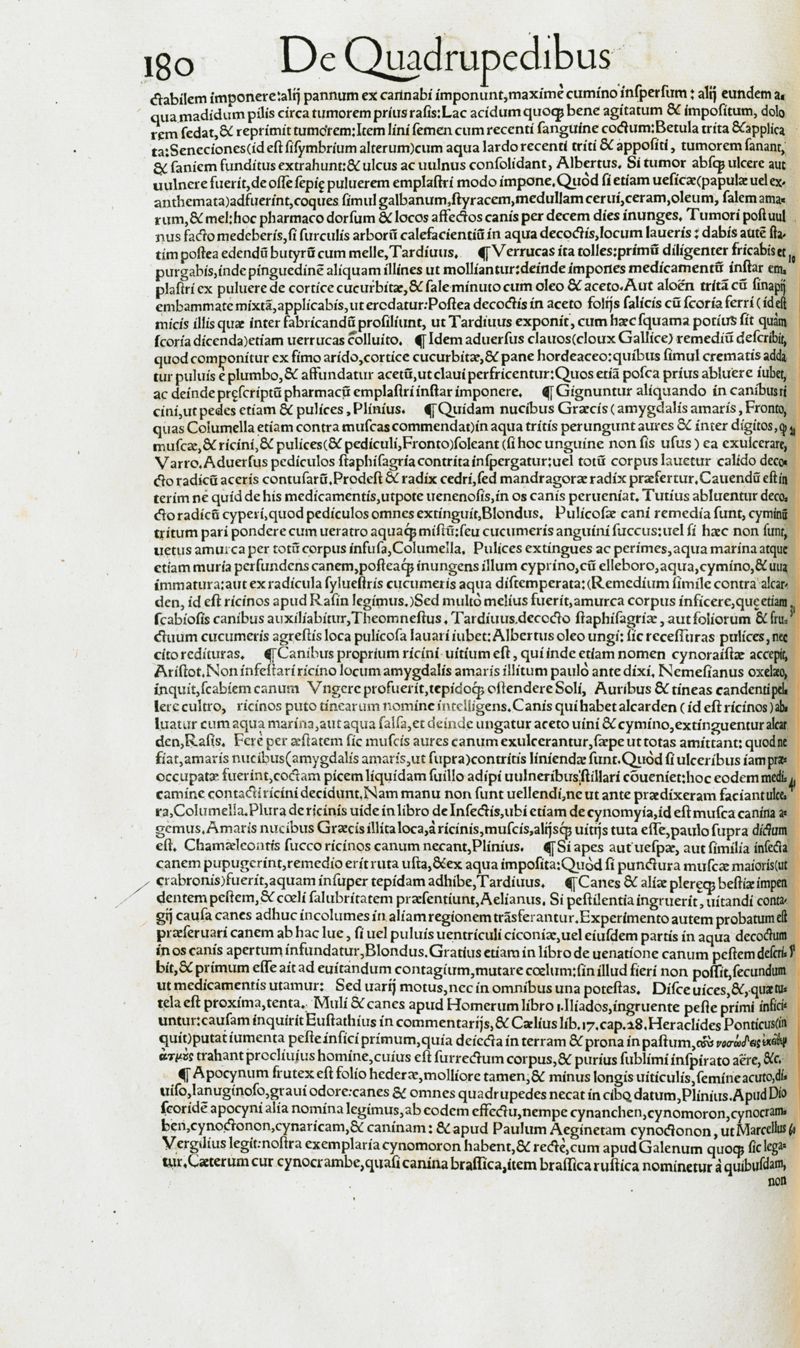 180 De Quadrupedibus
ctabilem imponere:alij pannum ex cannabi imponunt,maximè cumino inſperſum: alij eundem a-
qua madidum pilis circa tumorem prius raſis:Lac acidum quoqꝫ bene agitatum & impoſitum, dolo
rem ſedat,& reprimit tumorem:Item lini ſemen cum recenti ſanguine coctum:Betula trita &applica
ta:Seneciones(id eſt ſiſymbrium alterum)cum aqua lardo recenti triti & appoſiti, tumorem ſanant,
& ſaniem funditus extrahunt:& ulcus ac uulnus conſolidant, Albertus. Si tumor abſqꝫ ulcere aut
uulnere fuerit,de oſſe ſepię puluerem emplaſtri modo impone.Quòd ſi etiam ueſicæ(papulæ uel ex-
anthemata)adfuerint,coques ſimul galbanum,ſtyracem,medullam cerui,ceram,oleum, ſalem ama-
rum,& mel:hoc pharmaco dorſum & locos affectos canis per decem dies inunges. Tumori poſt uul
nus facto medeberis,ſi ſurculis arborũ calefacientiũ in aqua decoctis,locum laueris: dabis autẽ ſta-
tim poſtea edendũ butyrũ cum melle,Tardiuus. ¶Verrucas ita tolles:primũ diligenter fricabis et 10
purgabis,inde pinguedinẽ aliquam illines ut molliantur:deinde impones medicamentũ inſtar em-
plaſtri ex puluere de cortice cucurbitæ,& ſale minuto cum oleo & aceto.Aut aloën tritã cũ ſinapij
embammate mixtã,applicabis,ut erodatur:Poſtea decoctis in aceto folijs ſalicis cũ ſcoria ferri(id eſt
micis illis quæ inter fabricandũ proſiliunt, ut Tardiuus exponit, cum hæc ſquama potius ſit quàm
ſcoria dicenda)etiam uerrucas colluito. ¶Idem aduerſus clauos(cloux Gallice) remediũ deſcribit,
quod componitur ex fimo arido,cortice cucurbitæ,& pane hordeaceo:quibus ſimul crematis adda
tur puluis è plumbo,& affundatur acetũ,ut claui perfricentur:Quos etiã poſca prius abluere iubet,
ac deinde pręſcriptũ pharmacũ emplaſtri inſtar imponere. ¶Gignuntur aliquando in canibus ri
cini,ut pedes etiam & pulices, Plinius. ¶Quidam nucibus Græcis (amygdalis amaris, Fronto,
quas Columella etiam contra muſcas commendat)in aqua tritis perungunt aures & inter digitos, ꝙ
muſcæ,& ricini,& pulices(& pediculi,Fronto)ſoleant (ſi hoc unguine non ſis uſus) ea exulcerare,
Varro.Aduerſus pediculos ſtaphiſagria contrita inſpergatur:uel totũ corpus lauetur calido deco-
cto radicũ aceris contuſarũ.Prodeſt & radix cedri,ſed mandragoræ radix præfertur.Cauendũ eſt in
terim ne quid de his medicamentis,utpote uenenoſis,in os canis perueniat. Tutius abluentur deco-
cto radicũ cyperi,quod pediculos omnes extinguit,Blondus. Pulicoſæ cani remedia ſunt, cyminũ
tritum pari pondere cum ueratro aquaqꝫ miſtũ:ſeu cucumeris anguini ſuccus:uel ſi hæc non ſunt,
uetus amurca per totũ corpus infuſa,Columella. Pulices extingues ac perimes,aqua marina atque
etiam muria perfundens canem,poſteaqꝫ inungens illum cyprino,cũ elleboro,aqua,cymino,& uua
immatura:aut ex radicula ſylueſtris cucumeris aqua diſtemperata:(Remedium ſimile contra alcar-
den, id eſt ricinos apud Raſin legimus.)Sed multò melius fuerit,amurca corpus inficere,quę etiam
ſcabioſis canibus auxiliabitur,Theomneſtus. Tardiuus.decocto ſtaphiſagriæ, aut foliorum & fru-
ctuum cucumeris agreſtis loca pulicoſa lauari iubet:Albertus oleo ungi: ſic receſſuras pulices, nec
cito redituras. ¶Canibus proprium ricini uitium eſt, qui inde etiam nomen cynoraiſtæ accepit,
Ariſtot.Non infeſtari ricino locum amygdalis amaris illitum paulò ante dixi. Nemeſianus oxelæo,
inquit,ſcabiem canum Vngere profuerit,tepidoqꝫ oſtendere Soli, Auribus & tineas candenti pel-
lere cultro, ricinos puto tinearum nomine intelligens.Canis qui habet alcarden (id eſt ricinos)ab-
luatur cum aqua marina,aut aqua ſalſa,et deinde ungatur aceto uini & cymino,extinguentur alcar
den,Raſis. Ferè per æſtatem ſic muſcis aures canum exulcerantur,ſæpe ut totas amittant: quod ne
fiat,amaris nucibus(amygdalis amaris,ut ſupra)contritis liniendæ ſunt.Quòd ſi ulceribus iam præ-
occupatæ fuerint,coctam picem liquidam ſuillo adipi uulneribus ſtillari cõueniet:hoc eodem medi-
camine contacti ricini decidunt.Nam manu non ſunt uellendi,ne ut ante prædixeram faciant ulce-
ra,Columella.Plura de ricinis uide in libro de Inſectis,ubi etiam de cynomyia,id eſt muſca canina a-
gemus.Amaris nucibus Græcis illita loca,à ricinis,muſcis,alijsqꝫ uitijs tuta eſſe,paulo ſupra dictum
eſt. Chamæleontis ſucco ricinos canum necant,Plinius. ¶Si apes aut ueſpæ, aut ſimilia inſecta
canem pupugerint,remedio erit ruta uſta,& ex aqua impoſita:Quòd ſi punctura muſcæ maioris(ut
crabronis)fuerit,aquam inſuper tepidam adhibe,Tardiuus. ¶Canes & aliæ pleręqꝫ beſtiæ impen
dentem peſtem,& cœli ſalubritatem præſentiunt,Aelianus. Si peſtilentia ingruerit, uitandi conta-
gij cauſa canes adhuc incolumes in aliam regionem trãsferantur.Experimento autem probatum eſt
præſeruari canem ab hac lue, ſi uel puluis uentriculi ciconiæ,uel eiuſdem partis in aqua decoctum
in os canis apertum infundatur,Blondus.Gratius etiam in libro de uenatione canum peſtem deſcri-
bit,& primum eſſe ait ad euitandum contagium,mutare cœlum:ſin illud fieri non poſſit,ſecundum
ut medicamentis utamur: Sed uarij motus,nec in omnibus una poteſtas. Diſce uices,&, quæ tu-
tela eſt proxima,tenta. Muli & canes apud Homerum libro 1.Iliados,ingruente peſte primi infici-
untur:cauſam inquirit Euſtathius in commentarijs,& Cælius lib.17.cap.28.Heraclides Ponticus(in
quit)putat iumenta peſte infici primum,quia deiecta in terram & prona in paſtum,
ἀτμὲς trahant procliuius homine,cuius eſt ſurrectum corpus,& purius ſublimi inſpirato aëre, &c.
¶Apocynum frutex eſt folio hederæ,molliore tamen,& minus longis uiticulis,ſemine acuto,di-
uiſo,lanuginoſo,graui odore:canes & omnes quadrupedes necat in cibo datum,Plinius.Apud Dio
ſcoridẽ apocyni alia nomina legimus,ab eodem effectu,nempe cynanchen,cynomoron,cynocram-
ben,cynoctonon,cynaricam,& caninam: & apud Paulum Aeginetam cynoctonon, ut Marcellus
Vergilius legit:noſtra exemplaria cynomoron habent,& rectè,cum apud Galenum quoqꝫ ſic lega-
tur.Cæterum cur cynocrambe,quaſi canina braſſica,item braſſica ruſtica nominetur à quibuſdam,
non